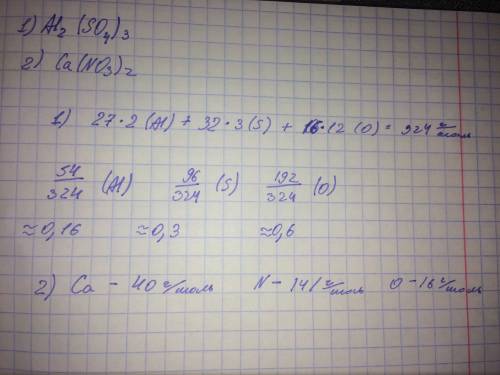 1) Al₂(SO₄)₃
2) Ca(NO₃)₂
1) 27·2 (Al) + 32·3 (S) + 16·12 (O) = 324 г/моль
54/324 (Al) 96/324 (S) 192/324 (O)
≈0,16 ≈0,3 ≈0,6
2) Ca - 40 г/моль N - 14 г/моль O - 16 г/моль